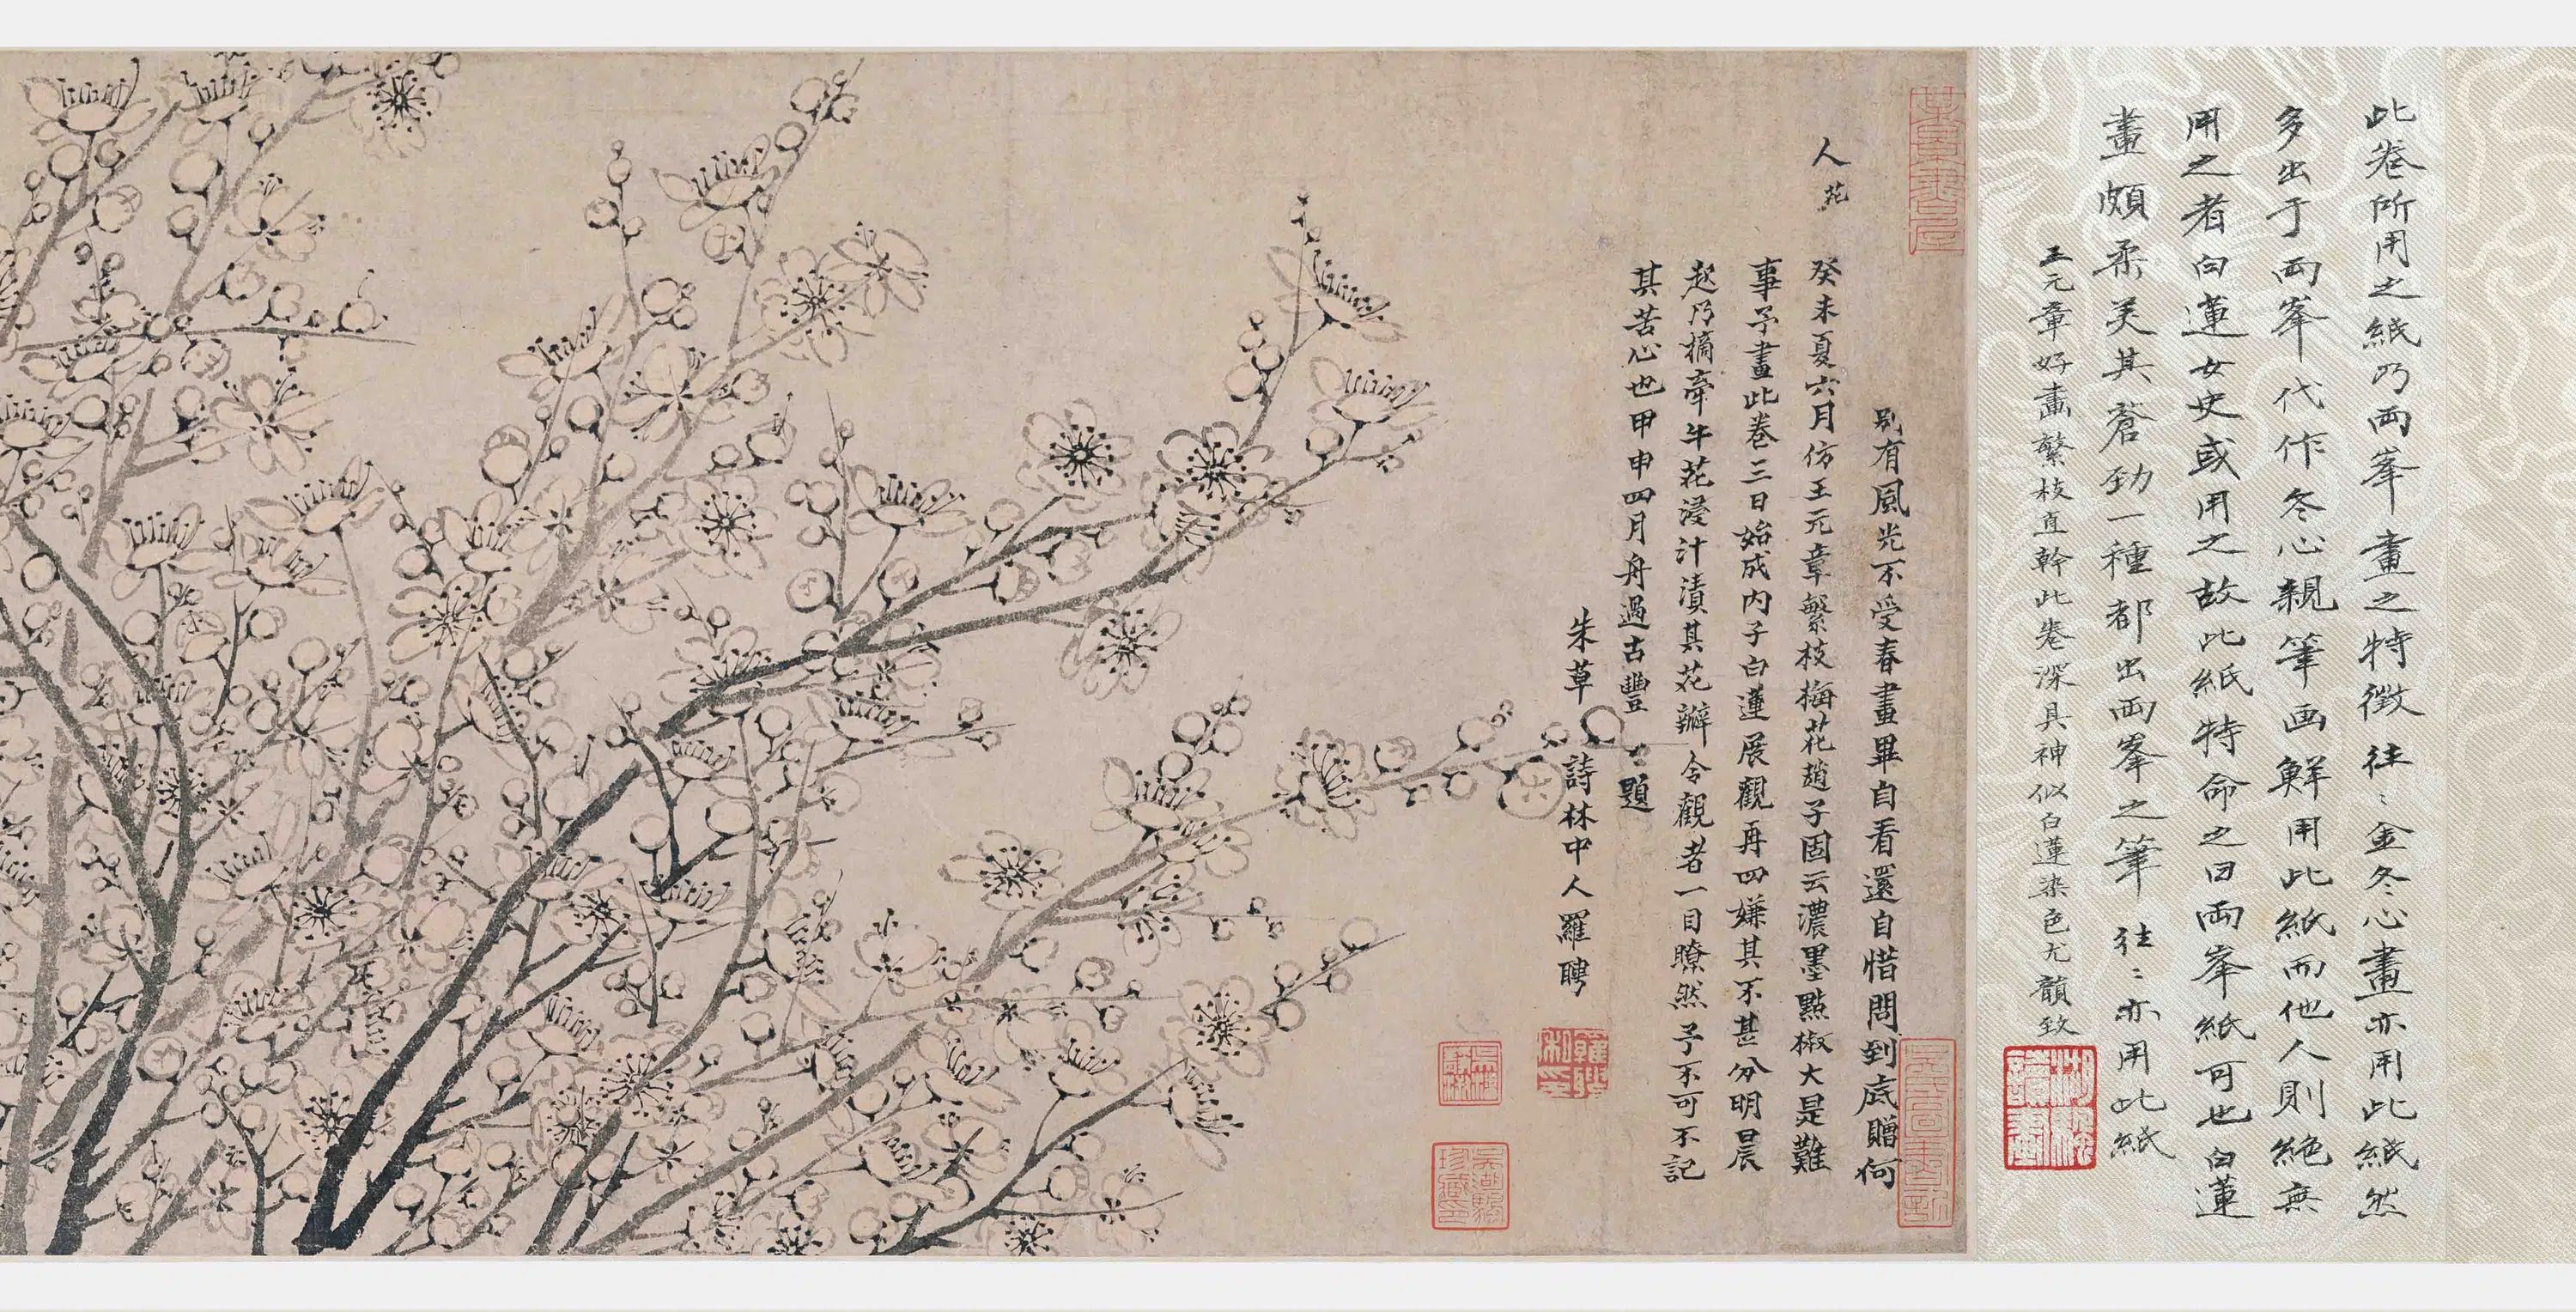 此卷所用之紙乃兩峯畫之特徵往〻金冬心畫亦用此紙然
多出于兩峯代作冬心親筆画鮮用此紙而他人則絕無
用之者白蓮女史或用之故此紙特命之曰兩峯紙可也白蓮
畫頗柔美其蒼劲一種都出兩峯之筆往〻亦用此紙
王元章好畫繁枝直幹此卷深具神似白蓮染色尤韻致
別有風光不受春畫畢自看還自惜問到底贈何
人花
癸未夏六月仿王元章繁枝梅花趙子固云濃墨點椒大是難
事予畫此卷三日始成内子白蓮展觀再四嫌其不甚分明晨
起乃摘牽牛花浸汁漬其花瓣令觀者一目瞭然予不可不記
其苦心也甲申四月舟過古豐〻題
朱草詩林中人羅聘